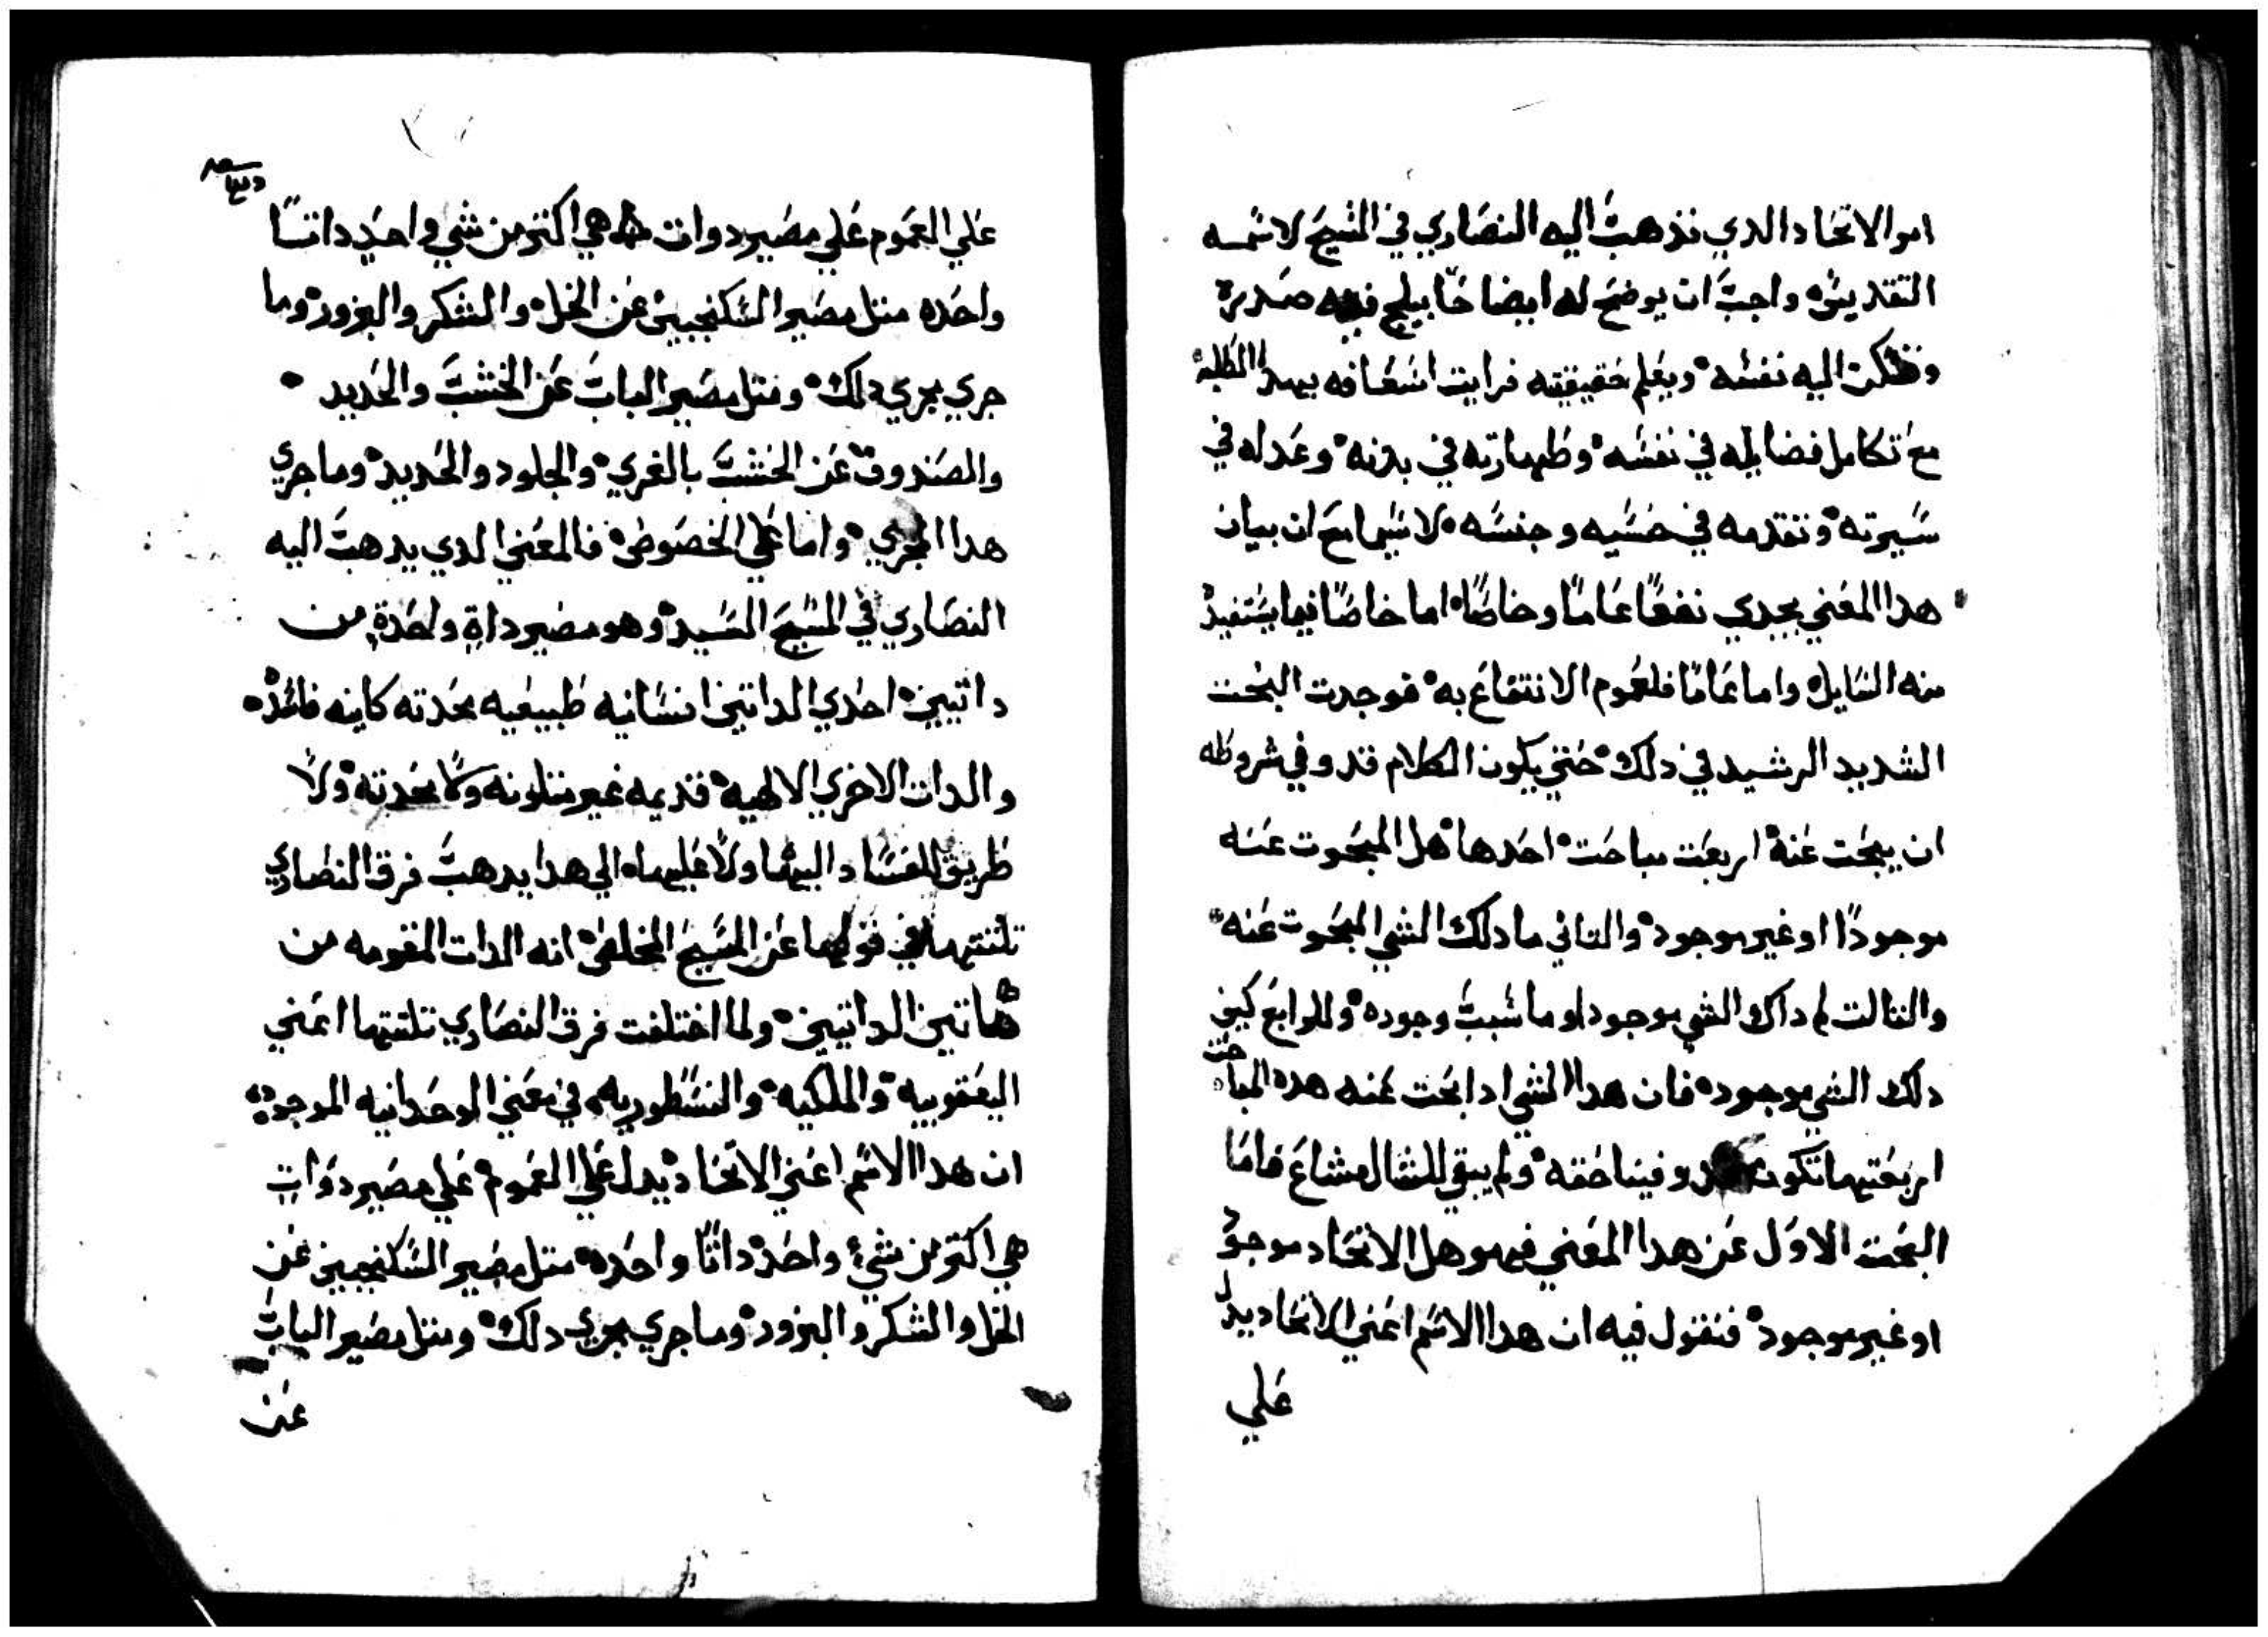 امر الاتحاد الدي تذهب اليه النصاري في المسيح لاسمه
التقديس واجب ان يوضح له ايضا حا يبلج فيه صدره
وتسكن اليه نفسه ويعلم حقيقته فرايت اسعافه بهدا الطلبه
مع تكامل فضايله في نفسه وطهارته في بدنه وعدله في
سيرته وتقدمه في حسبه وجنسه لاسيما مع ان بيان
هدا المعني يجدي نفعًا عامًا وخاصًا اما خاصًا فيما يستفيد
منه السايل واما عامًا فلعموم الانتفاع به فوجدت البحت
الشديد الرشيد في دلك حتي يكون الكلام قد وفي شروطه
ان يبحت عنه اربعت مباحت احدها هل المبحوت عنه
موجودًا او غير موجود والتاني ما دلك الشي المبحوت عنه
والتالت لم داك الشي موجود او ما سبب وجوده والرابع كيف
دلك الشي موجود فان هدا الشي ادا بحت عنه هده المباحت
اربعتهما تكون قد وفيناحقه ولم يبقي للسال مشاع فاما
البحت الاول عن هدا المعني فهو هل الاتحاد موجود
او غير موجود فنقول فيه ان هدا الاسم اعني الاتحاد يدل
علي
علي العموم علي مصير دوات هي اكتر من شي واحد داتًا
واحده متل مصير السكنجبين عن الخل والسكر والبزور وما
جري مجري دلك ومتل مصير الباب عن الخشب والحديد
والصندوق عن الخشب بالغري والجلود والحديد وما جري
هدا المجري واما علي الخصوص فالمعني الدي يدهب اليه
النصاري في المسيح السيد وهو مصير داة واحدة من
داتيين احدي الداتين انسانيه طبيعيه محدته كاينه فاسده
والدات الاخري الالهيه قديمه غير متلونه ولا محدته ولا
طريق للفساد اليهما ولا عليهما الي هدا يدهب فرق النصاري
تلتتهما في قولهما عن المسيح المخلص انه الدات المقومه من
هاتين الداتين ولما اختلفت فرق النصاري تلتتهما اعني
اليعقوبيه والملكيه والنسطوريه في معني الوحدانيه الموجوده
ان هدا الاسم اعني الاتحاد يدل علي العموم علي مصير دوات
هي اكتر من شي واحد داتًا واحده متل مصير السكنجبين عن
الخل والسكر والبزور وما جري مجري دلك ومتل مصير الباب
عن